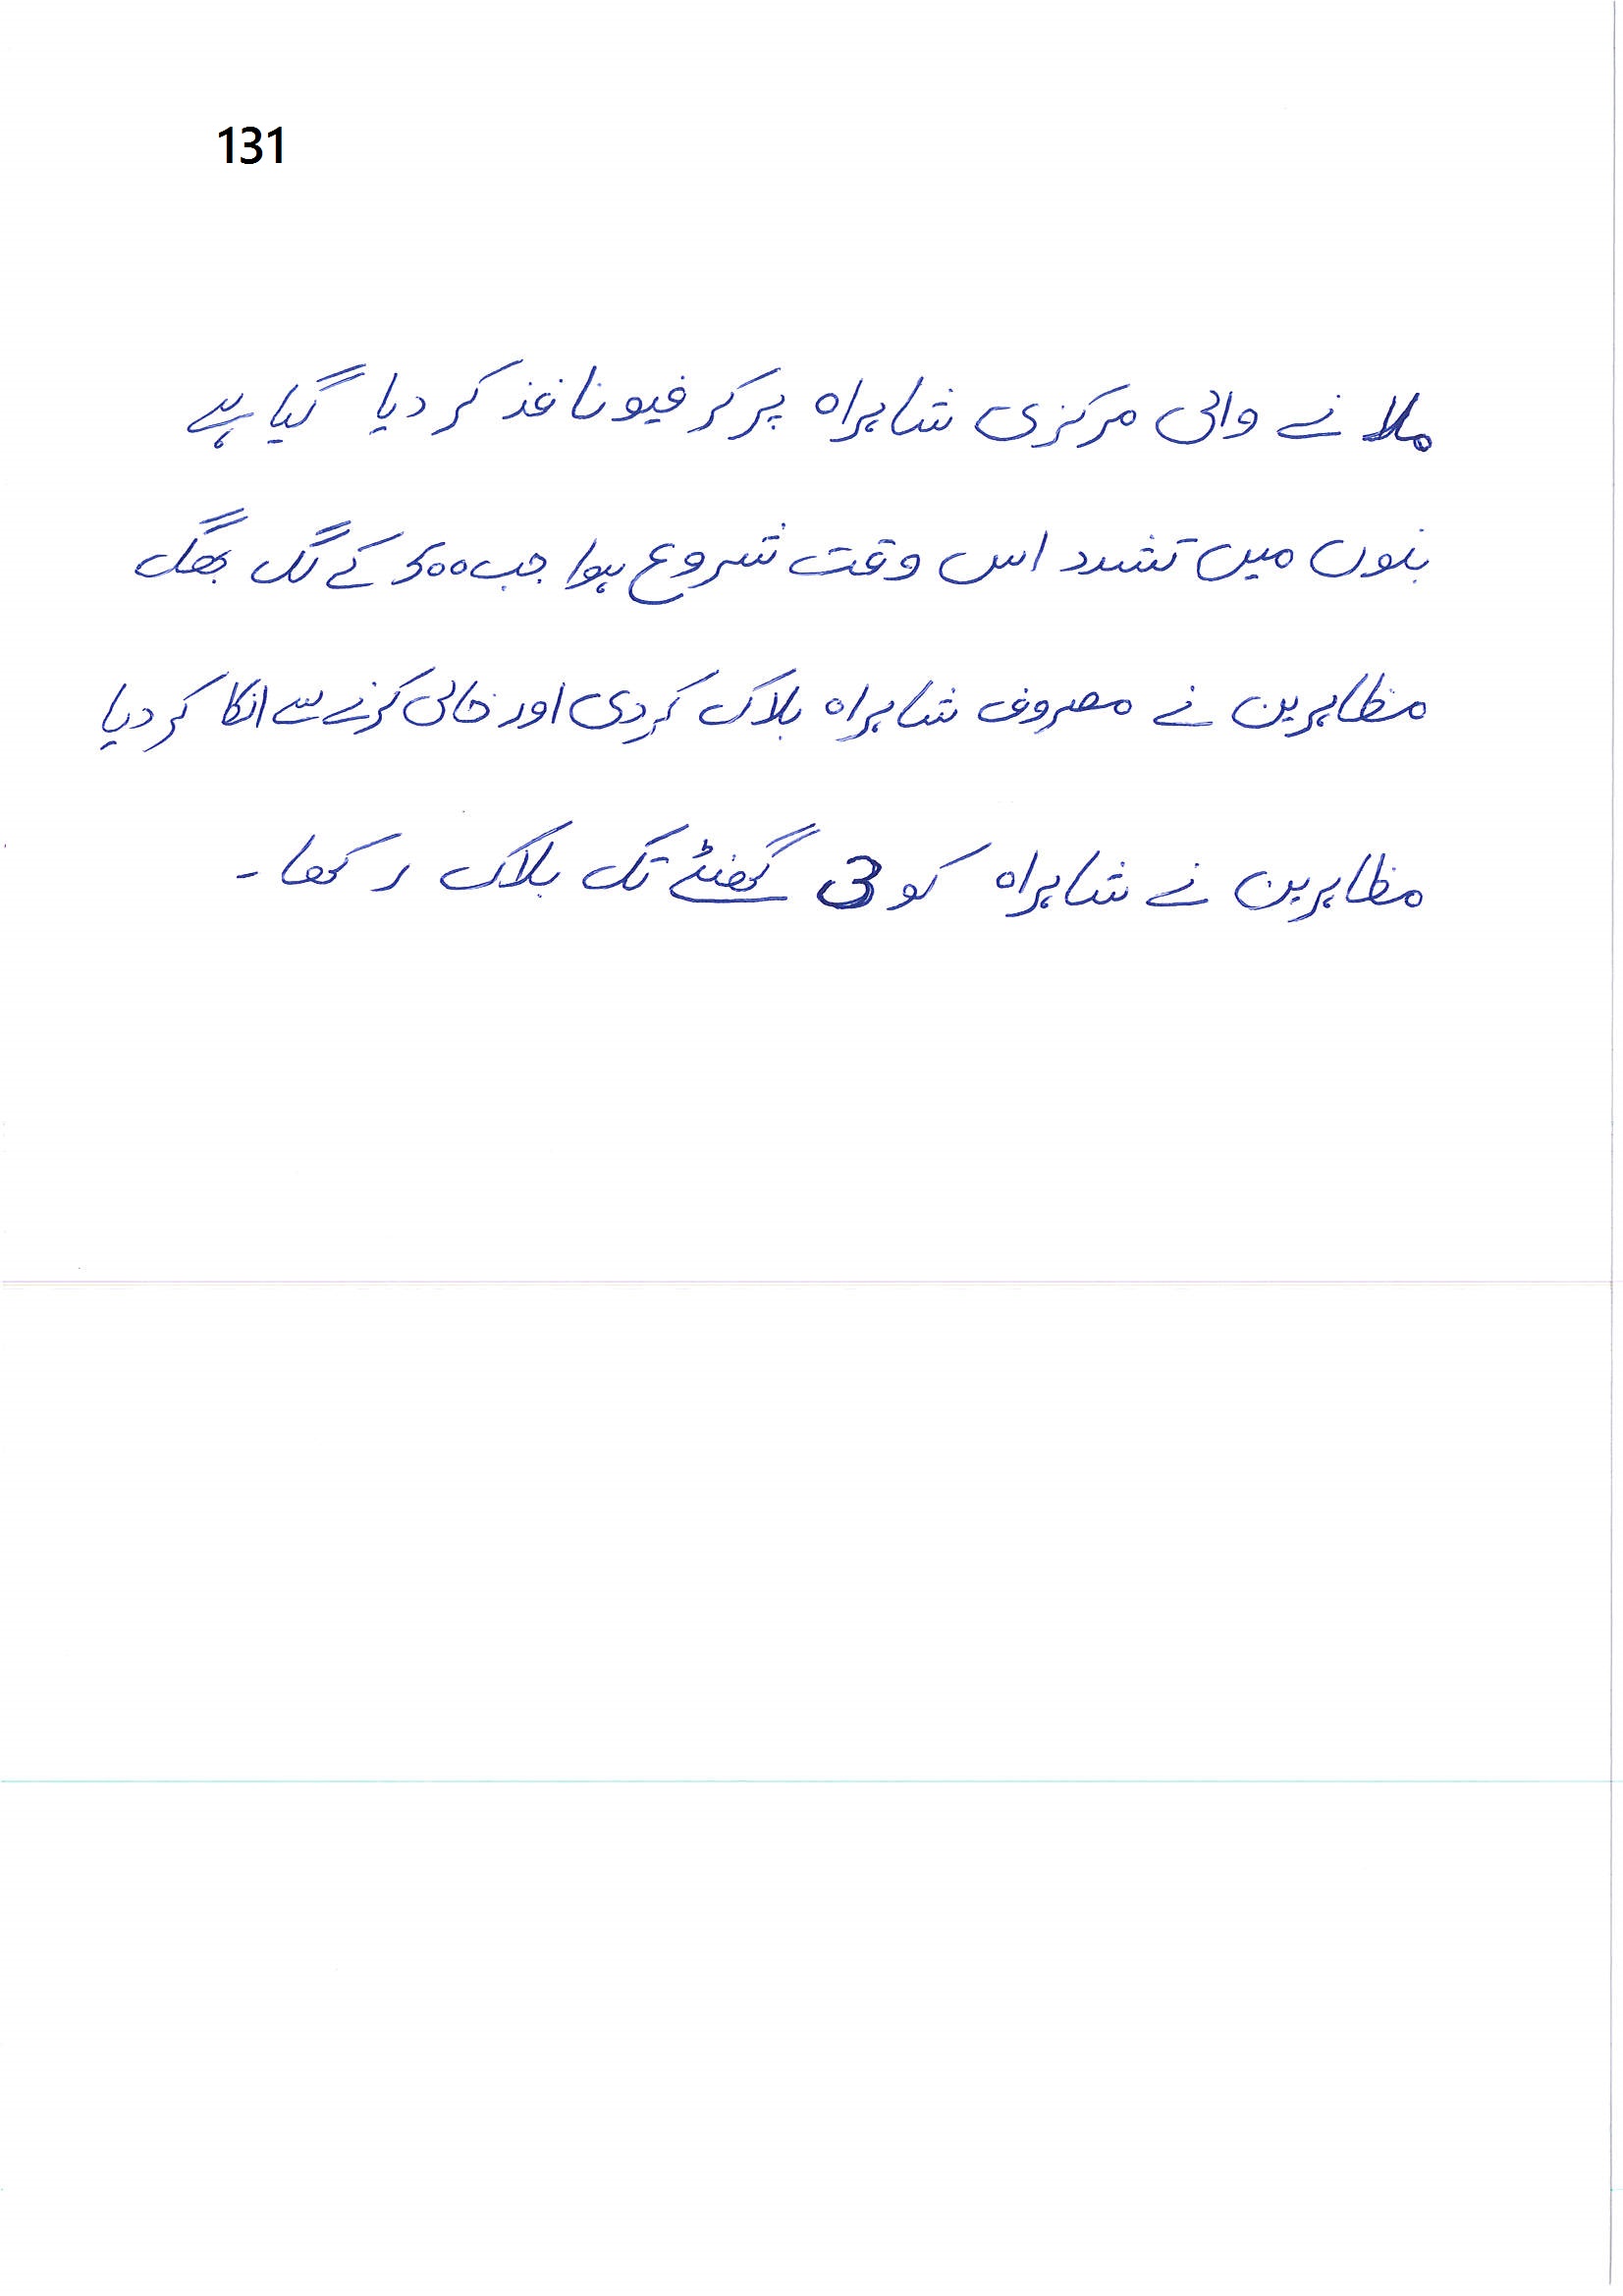 131
ملانے والی مرکزی شاہراہ پر کرفیو نافذ کر دیا گیا ہے
بنوں میں تشدد اس وقت شروع ہوا جب 500 کے لگ بھگ
مظاہرین نے مصروف شاہراہ بلاک کر دی اور خالی کرنے سے انکا کر دیا
مظاہرین نے شاہراہ کو 3 گھنٹے تک بلاک رکھا۔